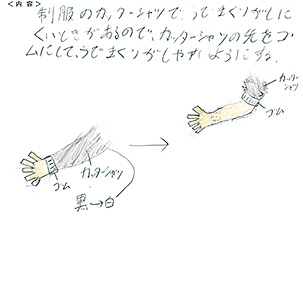 <内容>
制服のカッターシャツで、うでまくりがしに
くいときがあるので、カッターシャツの先をゴ
ムにして、うでまくりがしやすいようにする。
カッター
シャツ
ゴム
カッターシャツ
ゴム
黒→白